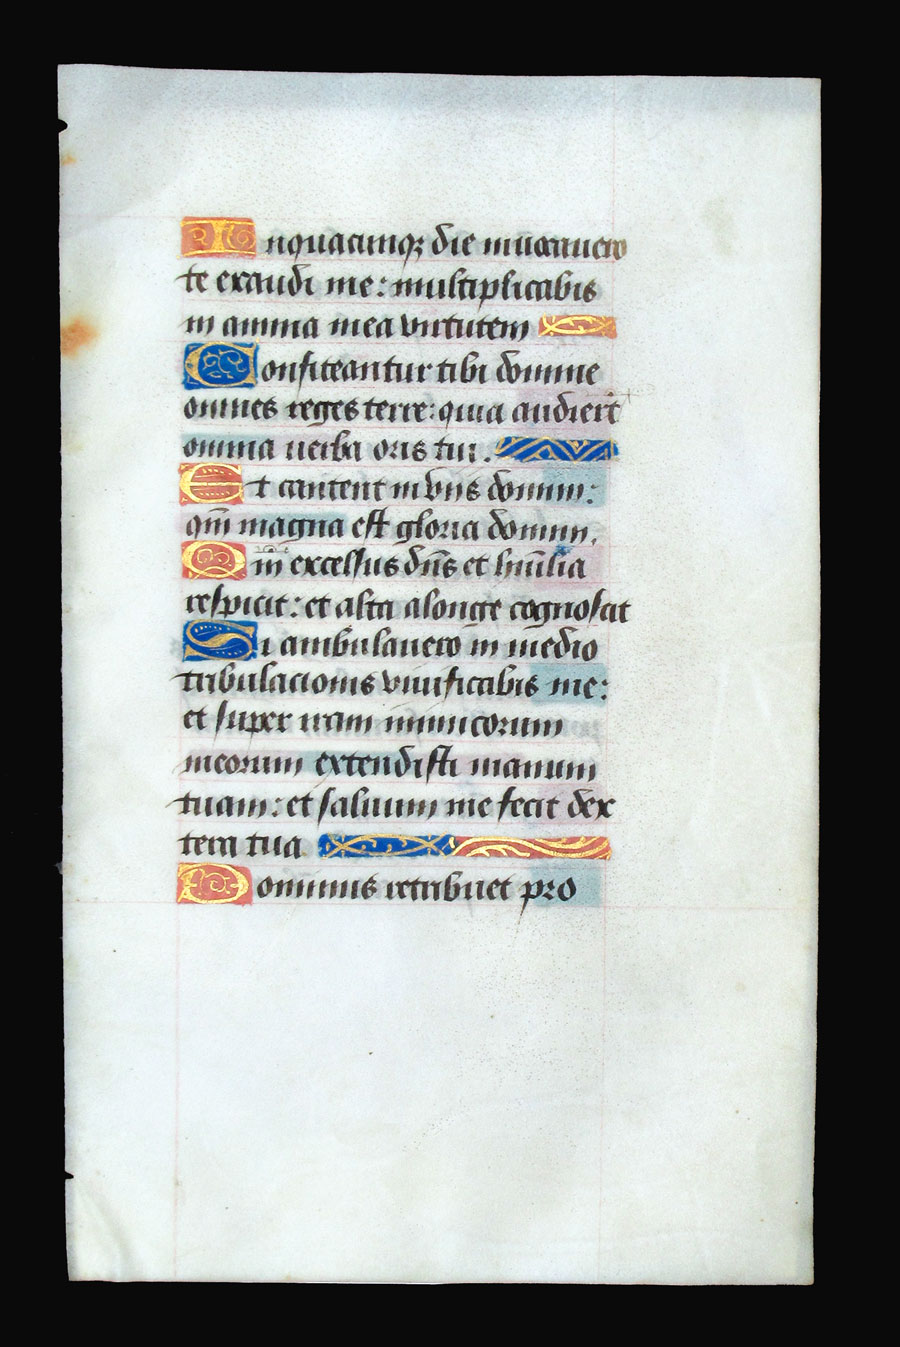 In quacunq; die invocavero
te exaudi me: multiplicabis
in anima mea virtutem
Confiteantur tibi domine
omnes reges terre: quia audiert̄
omnia verba oris tui.
Et cantent in viis domini:
qm̄ magna est gloria domini.
Qm̄ excelsus dn̄s et hūilia
respicit: et alta alonge cognoscit
Si ambulavero in medio
tribulacionis vivificabis me:
et super iram inimicorum
meorum extendisti manum
tuam: et salvum me fecit dex
tera tua
Dominus retribuet pro